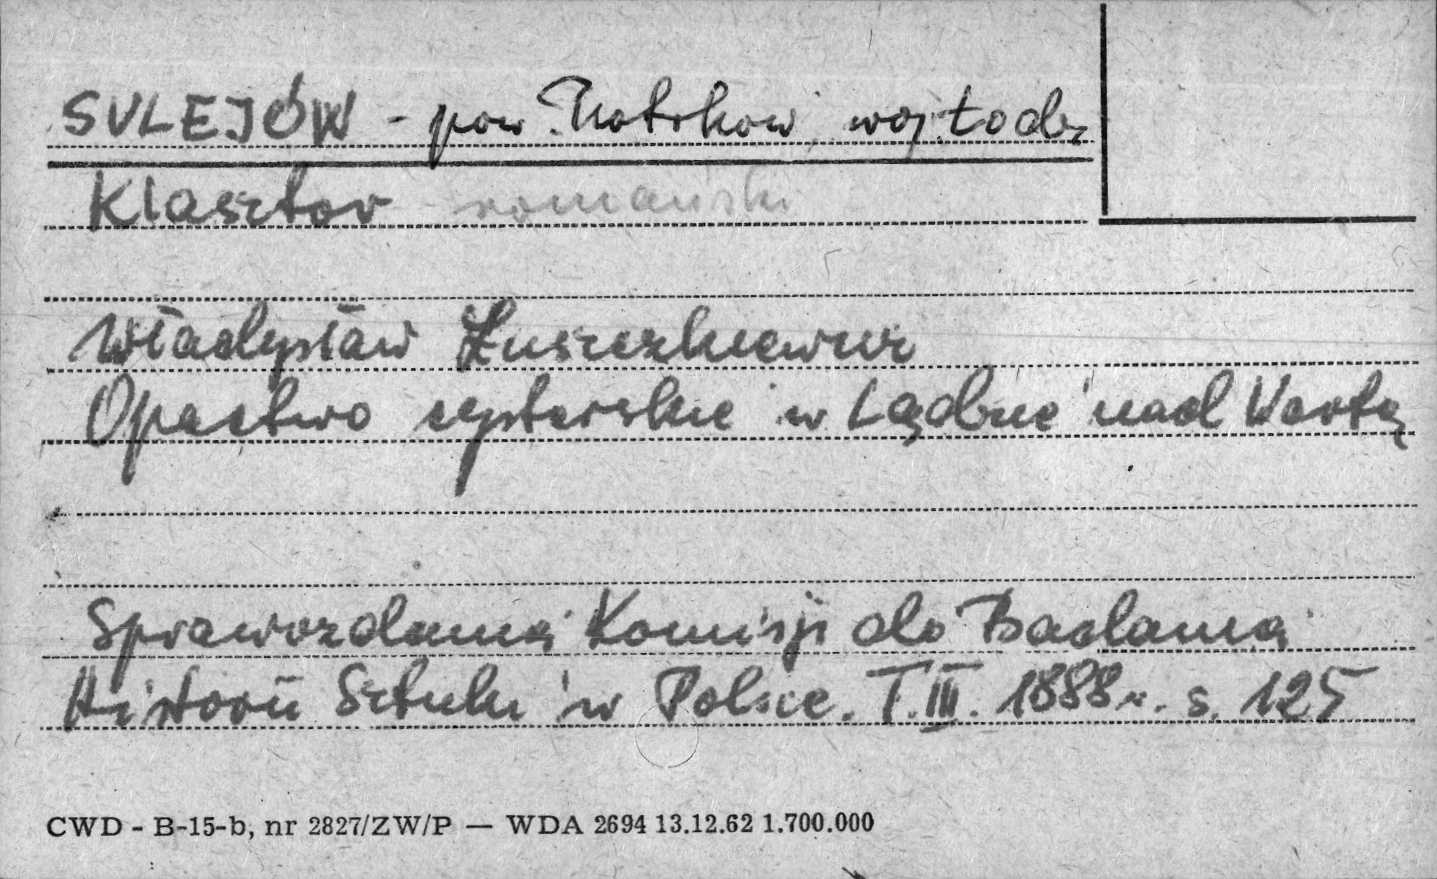 SULEJÓW - pow. Piotrków, woj. Łódź
Klasztor romański
Władysław Łuszczkiewicz
Opactwo cysterskie w Lądzie nad Wartą
Sprawozdania Komisji do Badania
Historii Sztuki w Polsce. T. III. 1888 r. s. 125
CWD - B-15-b, nr 2827/ZW/P — WDA 2694 13.12.62 1.700.000